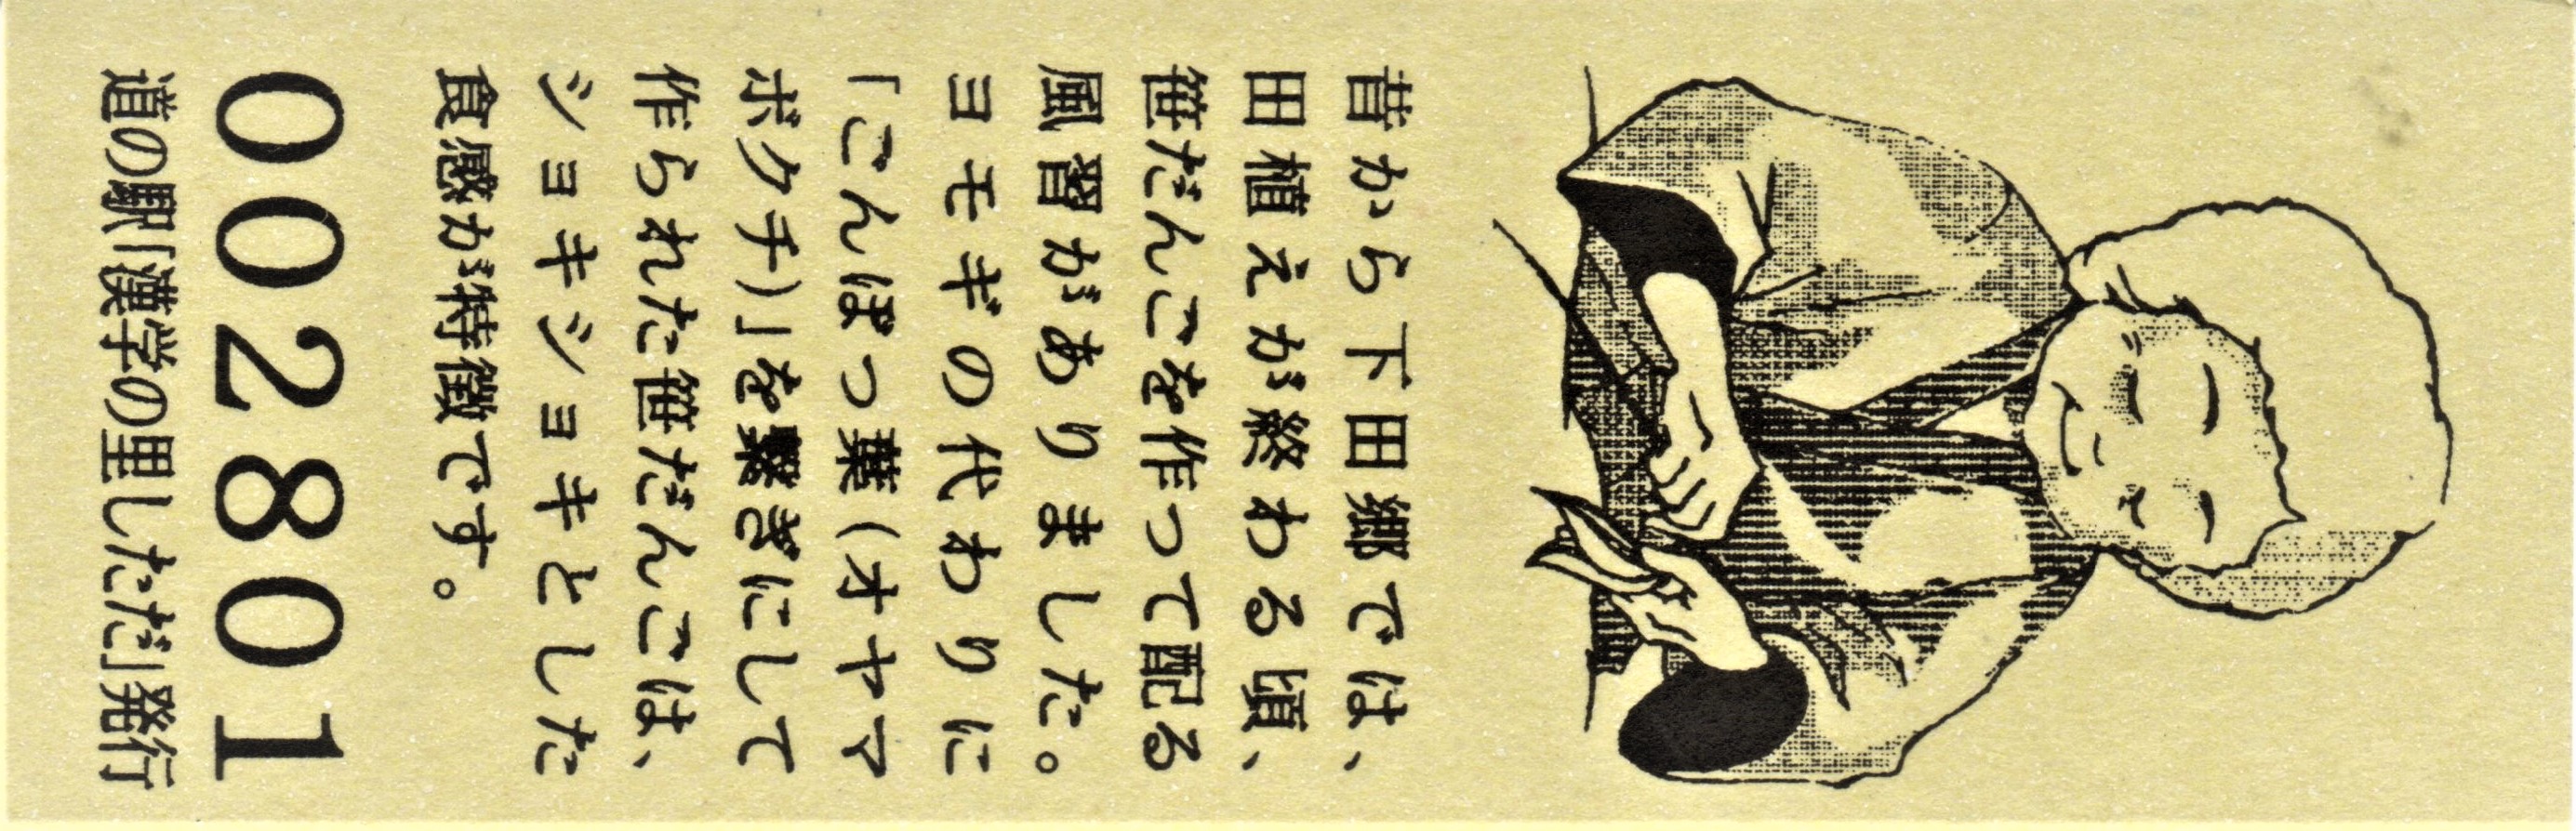 昔から下田郷では、
田植えが終わる頃、
笹だんごを作って配る
風習がありました。
ヨモギの代わりに
「ごんぼっ葉（オヤマ
ボクチ）」を繋ぎにして
作られた笹だんごは、
ショキショキとした
食感が特徴です。
002801
道の駅「漢学の里しただ」発行